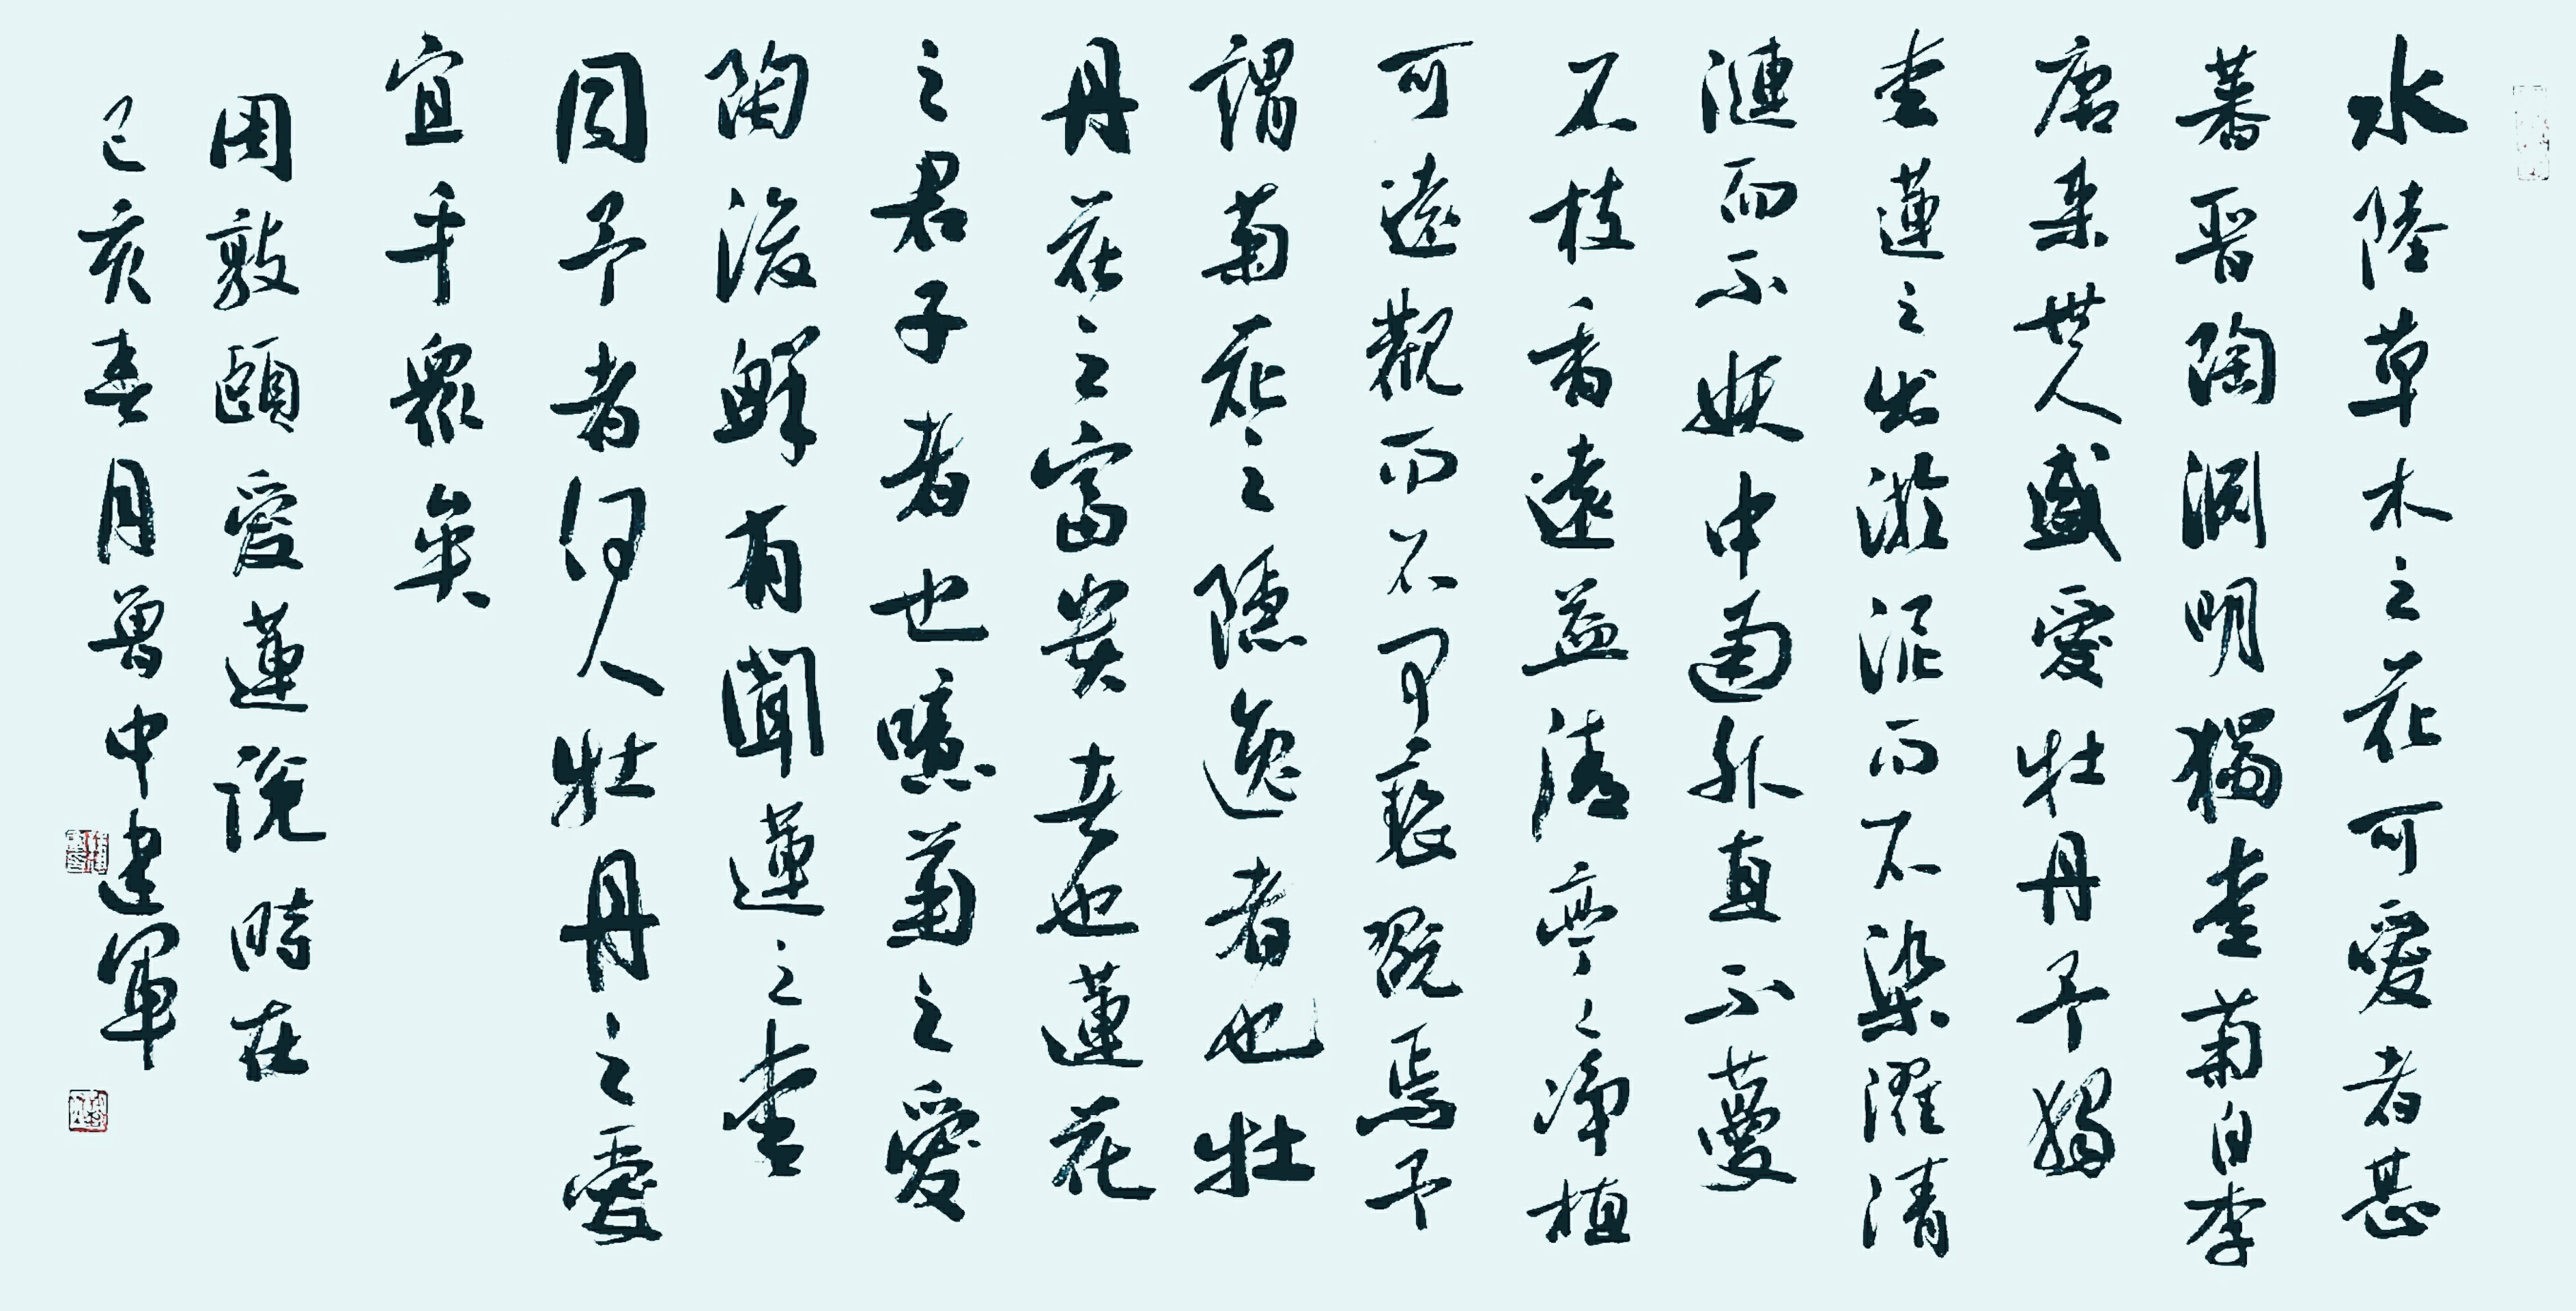 水陸草木之花可愛者甚
蕃晉陶渊明獨爱菊自李
唐来世人盛愛牡丹予獨
爱蓮之出淤泥而不染濯清
漣而不妖中通外直不蔓
不枝香遠益清亭々淨植
可遠觀而不可褻翫焉予
謂菊花之隱逸者也牡
丹花之富貴者也蓮花
之君子者也噫菊之愛
陶後鮮有聞蓮之爱
同予者何人牡丹之愛
宜乎眾矣
周敦頤愛蓮説時在
己亥春月魯中建軍